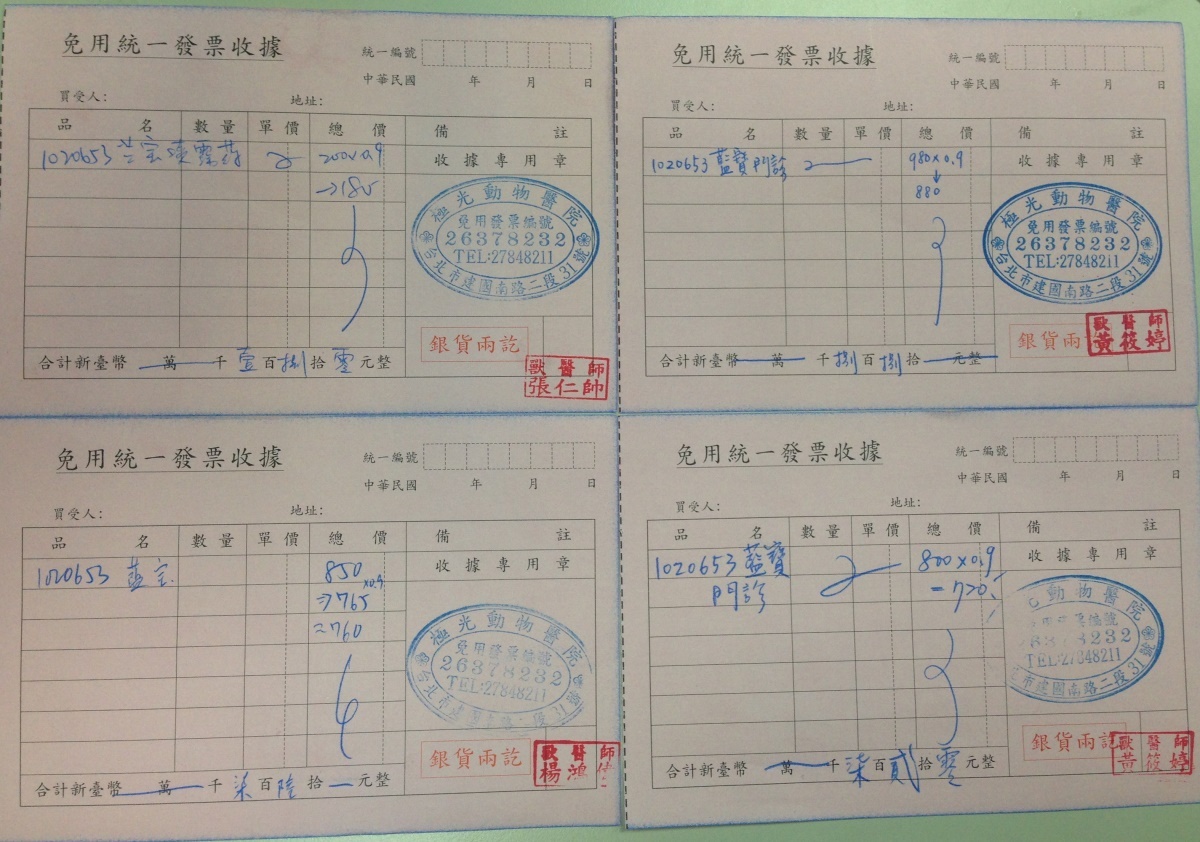 免用統一發票收據
統一編號
中華民國 年 月 日
買受人: 地址:
品 名 數量 單價 總價 備 註
1020653 200×0.9 收據專用章
→180
極光動物醫院
免用發票編號
26378232
TEL:27848211
台北市建國南路二段31號
銀貨兩訖
合計新臺幣 萬 千 壹 百 捌 拾 零 元整
獸醫師
張仁帥
免用統一發票收據
統一編號
中華民國 年 月 日
買受人: 地址:
品 名 數量 單價 總價 備 註
1020653 藍寶門診 980×0.9 收據專用章
↓
880
極光動物醫院
免用發票編號
26378232
TEL:27848211
台北市建國南路二段31號
銀貨兩
合計新臺幣 萬 千 捌 百 捌 拾 元整
獸醫師
黃筱婷
免用統一發票收據
統一編號
中華民國 年 月 日
買受人: 地址:
品 名 數量 單價 總價 備 註
1020653 850 收據專用章
×0.9
⇒765
=760
極光動物醫院
免用發票編號
26378232
TEL:27848211
銀貨兩訖
合計新臺幣 萬 千 柒 百 陸 拾 元整
獸醫師
楊鴻
免用統一發票收據
統一編號
中華民國 年 月 日
買受人: 地址:
品 名 數量 單價 總價 備 註
1020653 藍寶 800×0.9 收據專用章
門診 =720
動物醫院
編號
TEL:27848211
市建國南路二段31號
銀貨兩訖
合計新臺幣 萬 千 柒 百 貳 拾 零 元整
獸醫師
黃筱婷